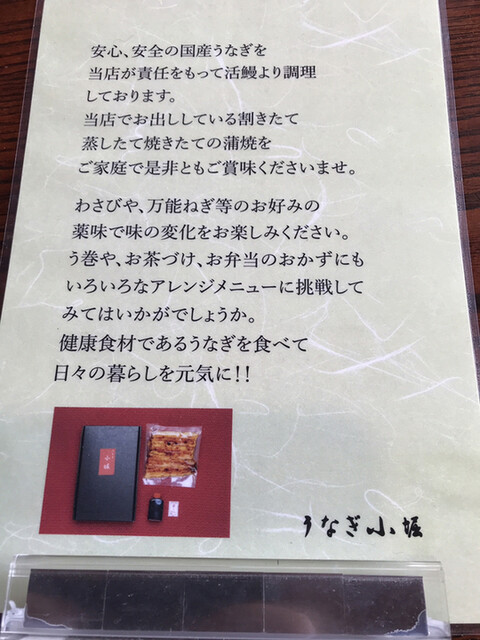 安心、安全の国産うなぎを
当店が責任をもって活鰻より調理
しております。
当店でお出ししている割きたて
蒸したて焼きたての蒲焼を
ご家庭で是非ともご賞味くださいませ。
わさびや、万能ねぎ等のお好みの
薬味で味の変化をお楽しみください。
う巻や、お茶づけ、お弁当のおかずにも
いろいろなアレンジメニューに挑戦して
みてはいかがでしょうか。
健康食材であるうなぎを食べて
日々の暮らしを元気に!!
小堀
うなぎ小堀